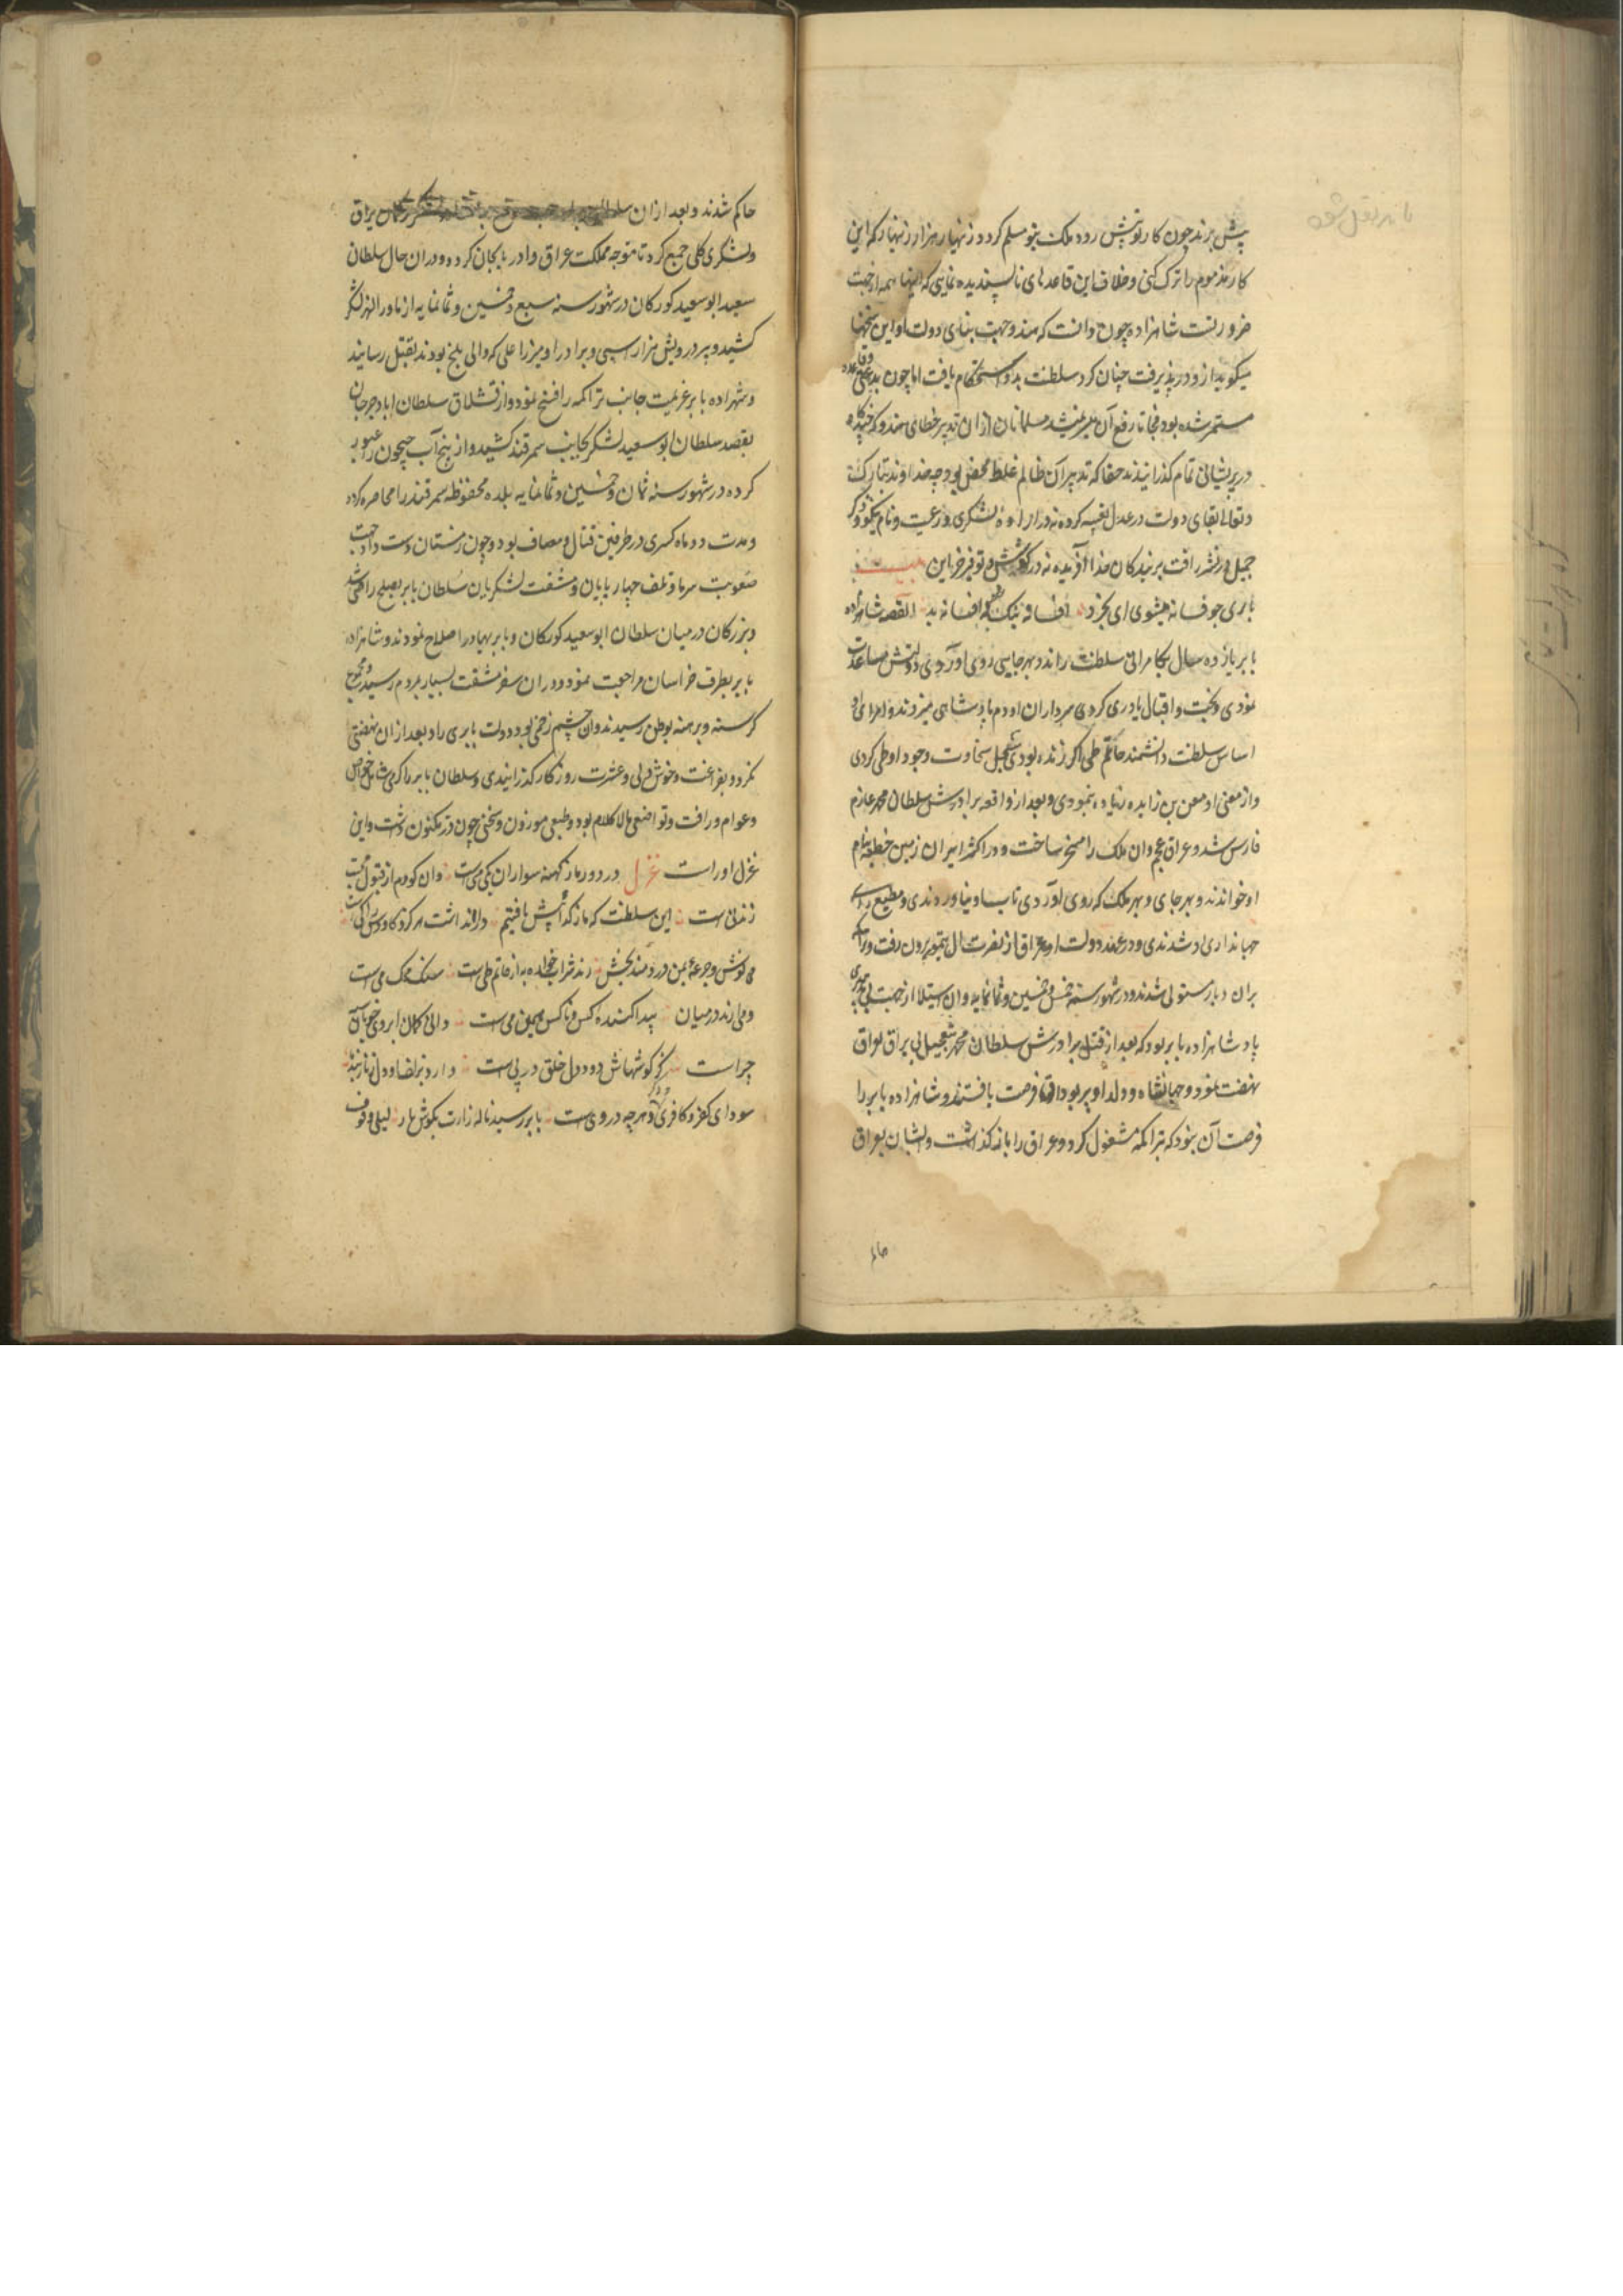 پیش برند چون کار تو پیش رود و ملک بتو مسلم کردد زنهار هزار زنهار که این
کار مذموم را ترک کنی و خلاف این قاعدهای ناپسندیده نمایی که اینها همه از جهت
ضرورتست شاهزاده چون دانست که هندو جهت بنای دولت او این سخنها
میکوید ازو در پذیرفت چنان کرد سلطنت بدو استحکام یافت اما چون بدعتی
مستمر شده بود فجاتا رفع آن میسر نمیشد مسلمانان ازان تدبیر خطای هندو که
در پریشانی تمام کذرانیدند حقا که تدبیر آن ظالم غلط محض بود چه خداوند تبارک
و تعالی بقای دولت در عدل تعبیه کرده نه در ازار لشکری و رعیت و نام نیکو و ذکر
جمیل در نشر رافت بر بندکان خدا آفریده نه در کوشش و توفیر خزاین بیت
باری چو فسانه میشوی ای بخرد افسانه نیک شو نه افسانه بد القصه شاهزاده
بابر یازده سال بکامرانی سلطنت راند و بهر جایی روی اوردی دولتش مساعدت
نمودی و بخت و اقبال یاوری کردی سرداران او دم پادشاهی میزدند و امرای او
اساس سلطنت داشتند حاتم طی اکر زنده بودی سجل سخاوت وجود او طی کردی
و از معنی او معن بن زایده زیاده ننمودی و بعد از واقعه برادرش سلطان محمد عازم
فارس شد و عراق عجم وان ملک را مسخر ساخت و در اکثر ایران زمین خطبه بنام
او خواندند و بهر جای و بهر ملک که روی اوردی تاب او نیاوردندی و مطیع
جهانداری او شدندی و در عهد دولت او عراق از تصرف ال تیمور برون رفت و تراکمه
بران دیار مستولی شدند و در شهور سنه خمس و خمسین و ثمانمایه وان استیلا از جهت بی تدبیری
پادشاهزاده بابر بود که بعد از قتل برادرش سلطان محمد بتعجیل بی یراق بعراق
نهضت نمود و جهانشاه و ولد او پیر بوداق فرصت یافتند و شاهزاده بابر را
فرصت آن نبود که بتراکمه مشغول کردد و عراق را باز کذاشت و ایشان بعراق
حاکم
حاکم شدند و بعد ازان یراق
و لشکری کلی جمع کرد تا متوجه مملکت عراق و اذربایجان کردد و دران حال سلطان
سعید ابو سعید کورکان در شهور سنه سبع و خمسین و ثمانمایه از ماورالنهر لشکر
کشید و پیر درویش هزار اسبی و برادر او میرزا علی که والی بلخ بودند بقتل رسانید
و شهزاده بابر عزیمت جانب تراکمه را فسخ نمود و از قشلاق سلطان اباد جرجان
بقصد سلطان ابو سعید لشکر بجانب سمرقند کشید و از پنج آب جیحون عبور
کرده در شهور سنه ثمان و خمسین و ثمانمایه بلده محفوظه سمرقند را محاصره کرد
و مدت دو ماه کسری در طرفین قتال و مصاف بود و چون زمستان دست داد جهت
صعوبت سرما و تلف چهارپایان و مشقت لشکریان سلطان بابر بصلح راضی شد
و بزرکان درمیان سلطان ابو سعید کورکان و بابر بهادر اصلاح نمودند و شاهزاده
بابر بطرف خراسان مراجعت نمود و دران سفر مشقت بسیار بمردم رسید و مجروح
کرسنه و برهنه بوطن رسیدند وان چشم زخمی بود دولت بابری را و بعد ازان نهضتی
نکرد و بفراغت و خوش دلی و عشرت روزکار کذرانیدی و سلطان بابر را کرمی شامل خواص
و عوام و رافت و تواضعی مالاکلام بود و طبعی موزون و سخنی چون در مکنون داشت و این
غزل اوراست غزل در دور ما ز کهنه سواران یکی می است وان کو دم از قبول محبت
زند نی است این سلطنت که ما ز کدائیش یافتیم دارا نداشت هرکز و کاوس کی
می نوش و جرعه بمن دردمند بخش رند شراب خواره به از حاتم طی است سنک محک می است
ومی ارند در میان پیدا کننده کس و ناکس همین می است دانی کمان ابروی خوبان سیه
چراست کز کوشهاش دود دل خلق در پی است دارد بزلفا و دل زنار بند ما
سودای کفر و کافری و هرچه دروی است بابر رسید ناله زارت بکوش یار لیلی وقوف